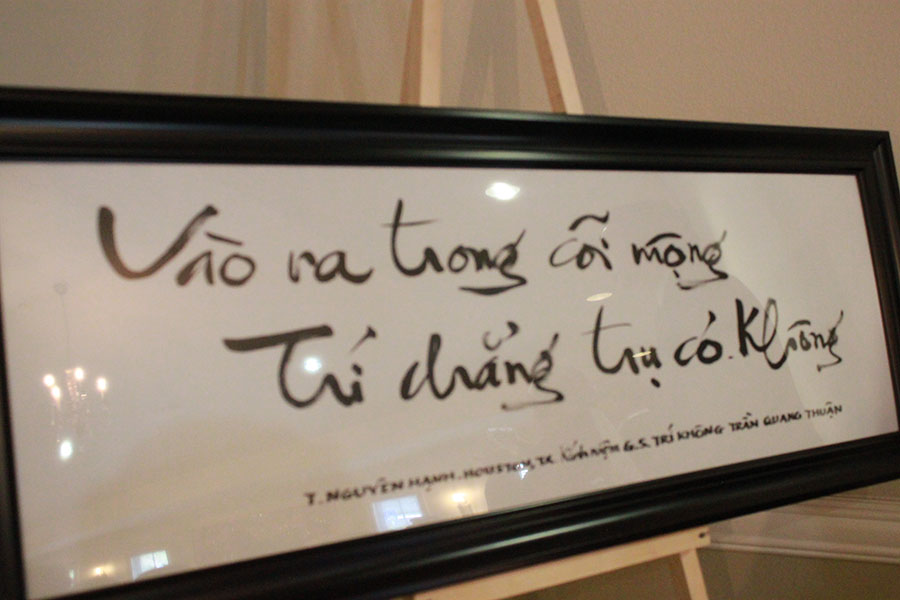 Vào ra trong cõi mộng
Trí chẳng trụ có. Không
T. NGUYÊN HẠNH. HOUSTON, TX Kính niệm G.S. TRÍ KHÔNG TRẦN QUANG THUẬN